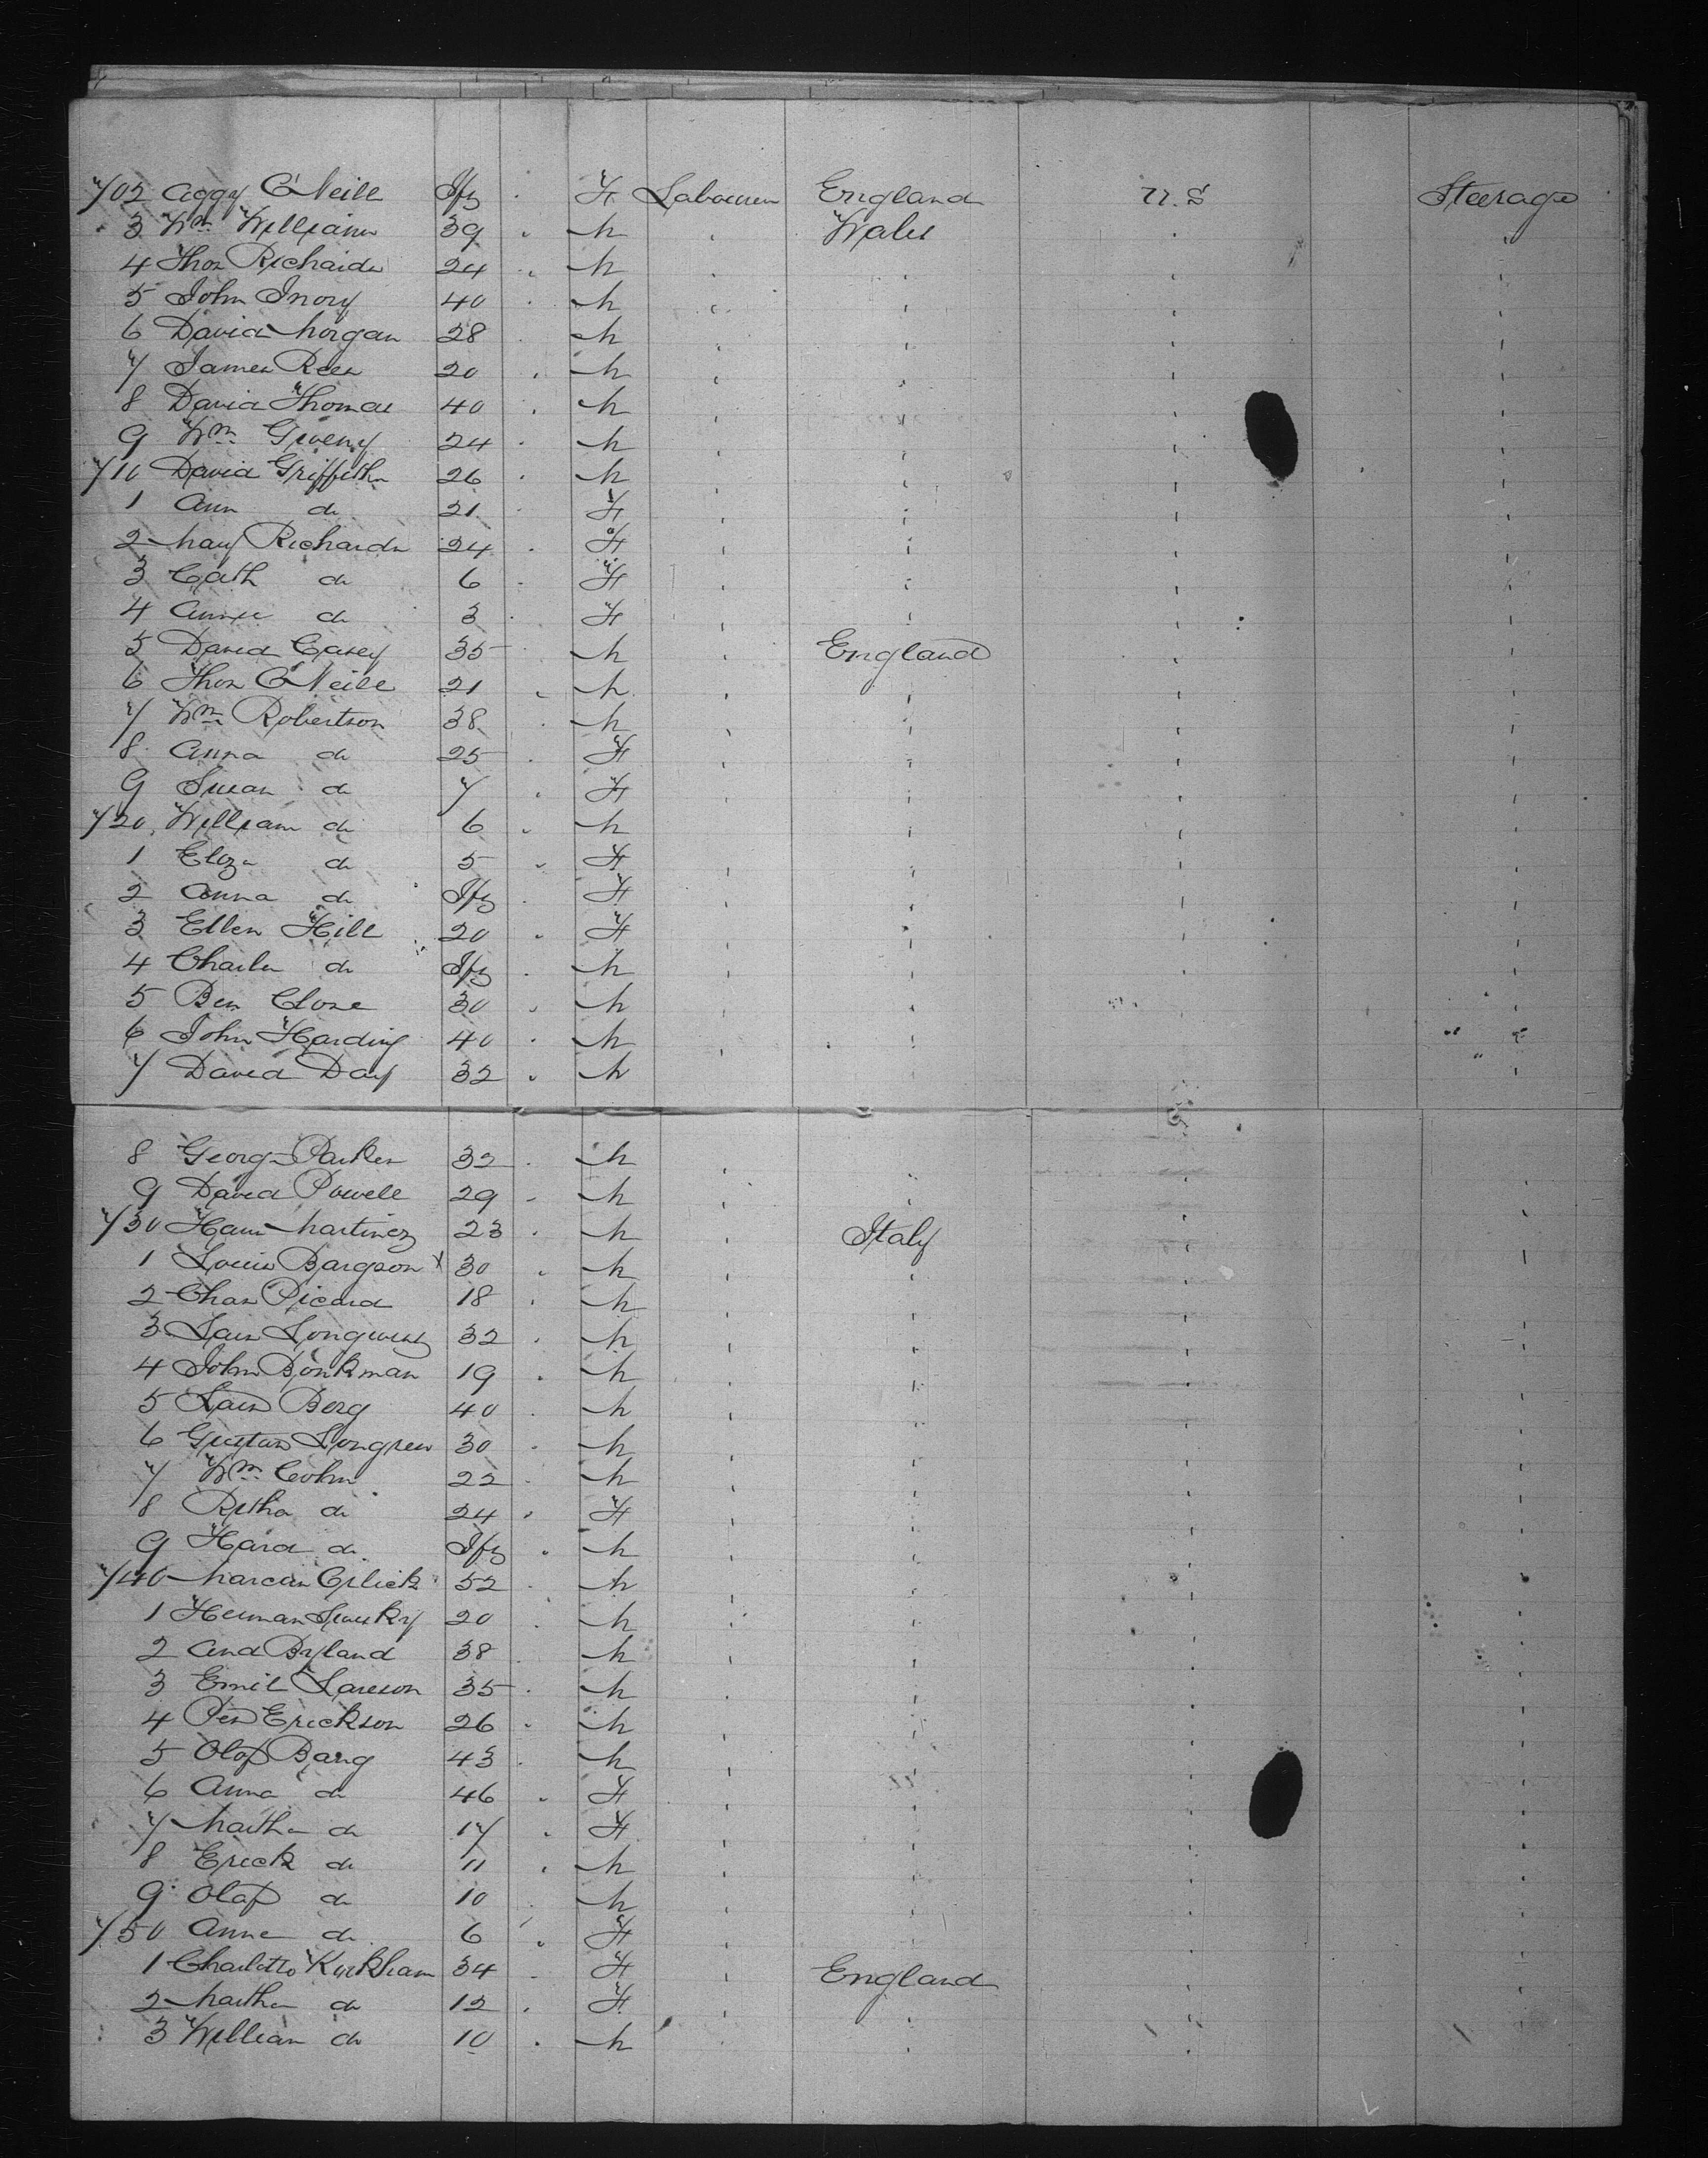 702 Aggy O'Neill Ify . F Labourer England U.S Steerage
3 Wm Williams 39 " M " Wales " "
4 Thos Richards 24 " M " " " "
5 John Ivory 40 " M " " " "
6 David Morgan 28 " M " " " "
7 James Rees 20 " M " " " "
8 David Thomas 40 " M " " " "
9 Wm 24 " M " " " "
710 David Griffiths 26 " M " " " "
1 Ann do 21 " F " " " "
2 Mary Richards 24 " F " " " "
3 Cath do 6 " F " " " "
4 Annie do 3 " F " " " "
5 David Casey 35 " M " England " "
6 Thos O'Neill 21 " M " " " "
7 Wm Robertson 38 " M " " " "
8 Anna do 25 " F " " " "
9 Susan do 7 " F " " " "
720 William do 6 " M " " " "
1 Eliza do 5 " F " " " "
2 Anna do Ify " F " " " "
3 Ellen Hill 20 " F " " " "
4 Charles do Ify " M " " " "
5 Ben Close 30 " M " " " "
6 John Harding 40 " M " " " "
7 David Day 32 " M " " " "
8 George Parker 32 " M " " " "
9 David Powell 29 " M " " " "
730 Hans Martinez 23 " M " Italy " "
1 Louis Bargson x 30 " M " " " "
2 Chas Picard 18 " M " " " "
3 Lars 32 " M " " " "
4 John Bjorkman 19 " M " " " "
5 Lars Berg 40 " M " " " "
6 Gustav Longren 30 " M " " " "
7 Wm Cohn 22 " M " " " "
8 Retha do 24 " F " " " "
9 do Ify " M " " " "
740 Marcus 52 " M " " " "
1 Herman 20 " M " " " "
2 And Byland 38 " M " " " "
3 Emil Lareson 35 " M " " " "
4 Per Erickson 26 " M " " " "
5 Olof Barg 43 " M " " " "
6 Anna do 46 " F " " " "
7 Martha do 17 " F " " " "
8 Erick do 11 " M " " " "
9 Olaf do 10 " M " " " "
750 Anna do 6 " F " " " "
1 Charlotte Kirkham 34 " F " England " "
2 Martha do 12 " F " " " "
3 William do 10 " M " " " "